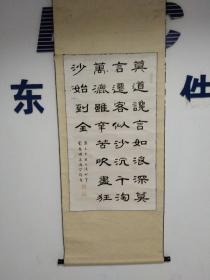 莫道讒言如浪深莫
言遷客似沙沉千淘
萬漉雖辛苦吹盡狂
沙始到金
东
件